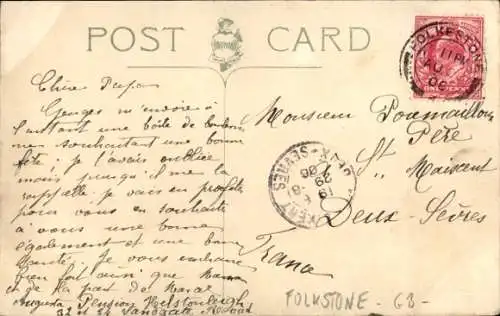 POST CARD
FOLKESTONE
11 PM
AU
06
Chère
Georges m'envoie à
l'instant une boîte de bonbons
me souhaitant une bonne
fête; je l'avais oubliée
mais puisqu'il me la
rappelle je vais en profiter
pour vous en souhaiter
à vous une bonne
également et une bonne
santé. Je vous embrasse
bien fort ainsi que
et de la part de
Pension
32 et 34 Sandgate Road
Monsieur
Père
St Maixent
Deux-Sèvres
France
SEVRES
FOLKSTONE - GB -